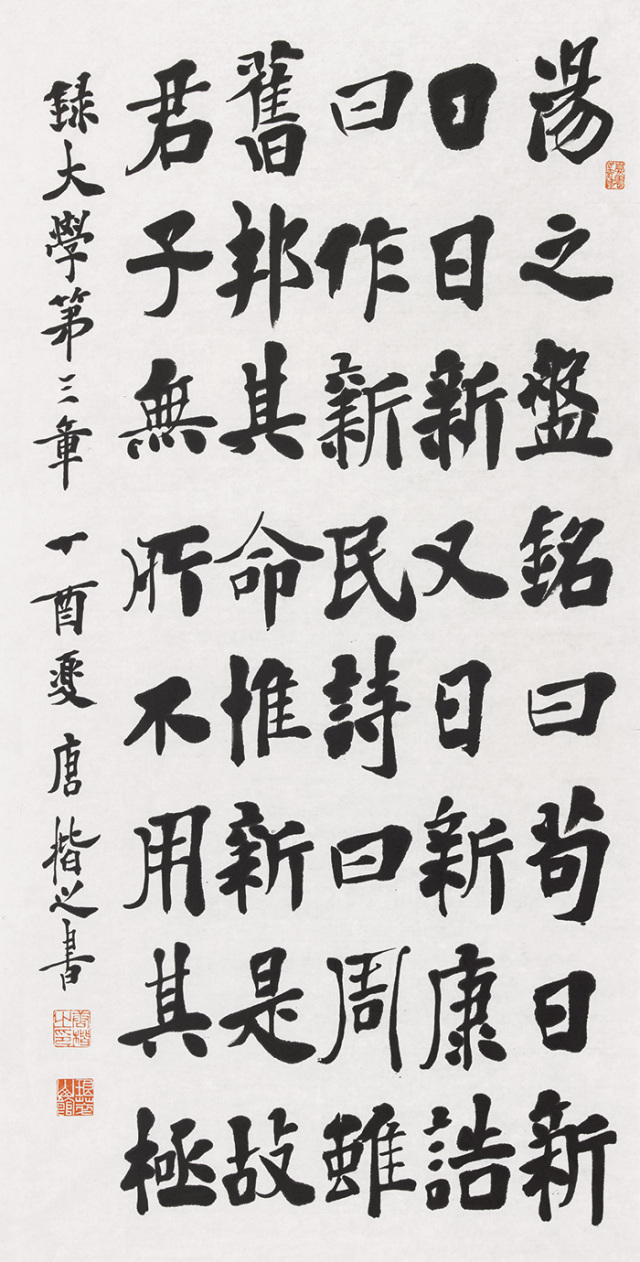 湯之盤銘曰苟日新
日日新又日新康誥
曰作新民詩曰周雖
舊邦其命惟新是故
君子無所不用其極
録大學第三章 丁酉夏 唐楷之書
唐楷之印